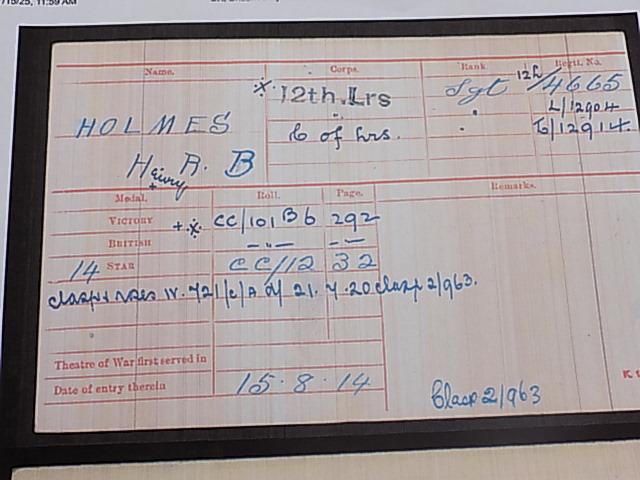 7/15/25, 11:59 AM
Name. Corps. Rank. Regtl. No.
HOLMES
Henry A. B
+
* 12th. Lrs Sgt 12L/4665
" " L/12904
C of Lrs. " L/12914.
Medal. Roll. Page. Remarks.
VICTORY +* CC/101 B6 292
BRITISH — " — — —
14 STAR CC/1/2 32
Clasp & roses IV. 721/c/A of 21. 7. 20 clasp 2/963.
Theatre of War first served in
Date of entry therein 15.8.14
Clasp 2/963
K